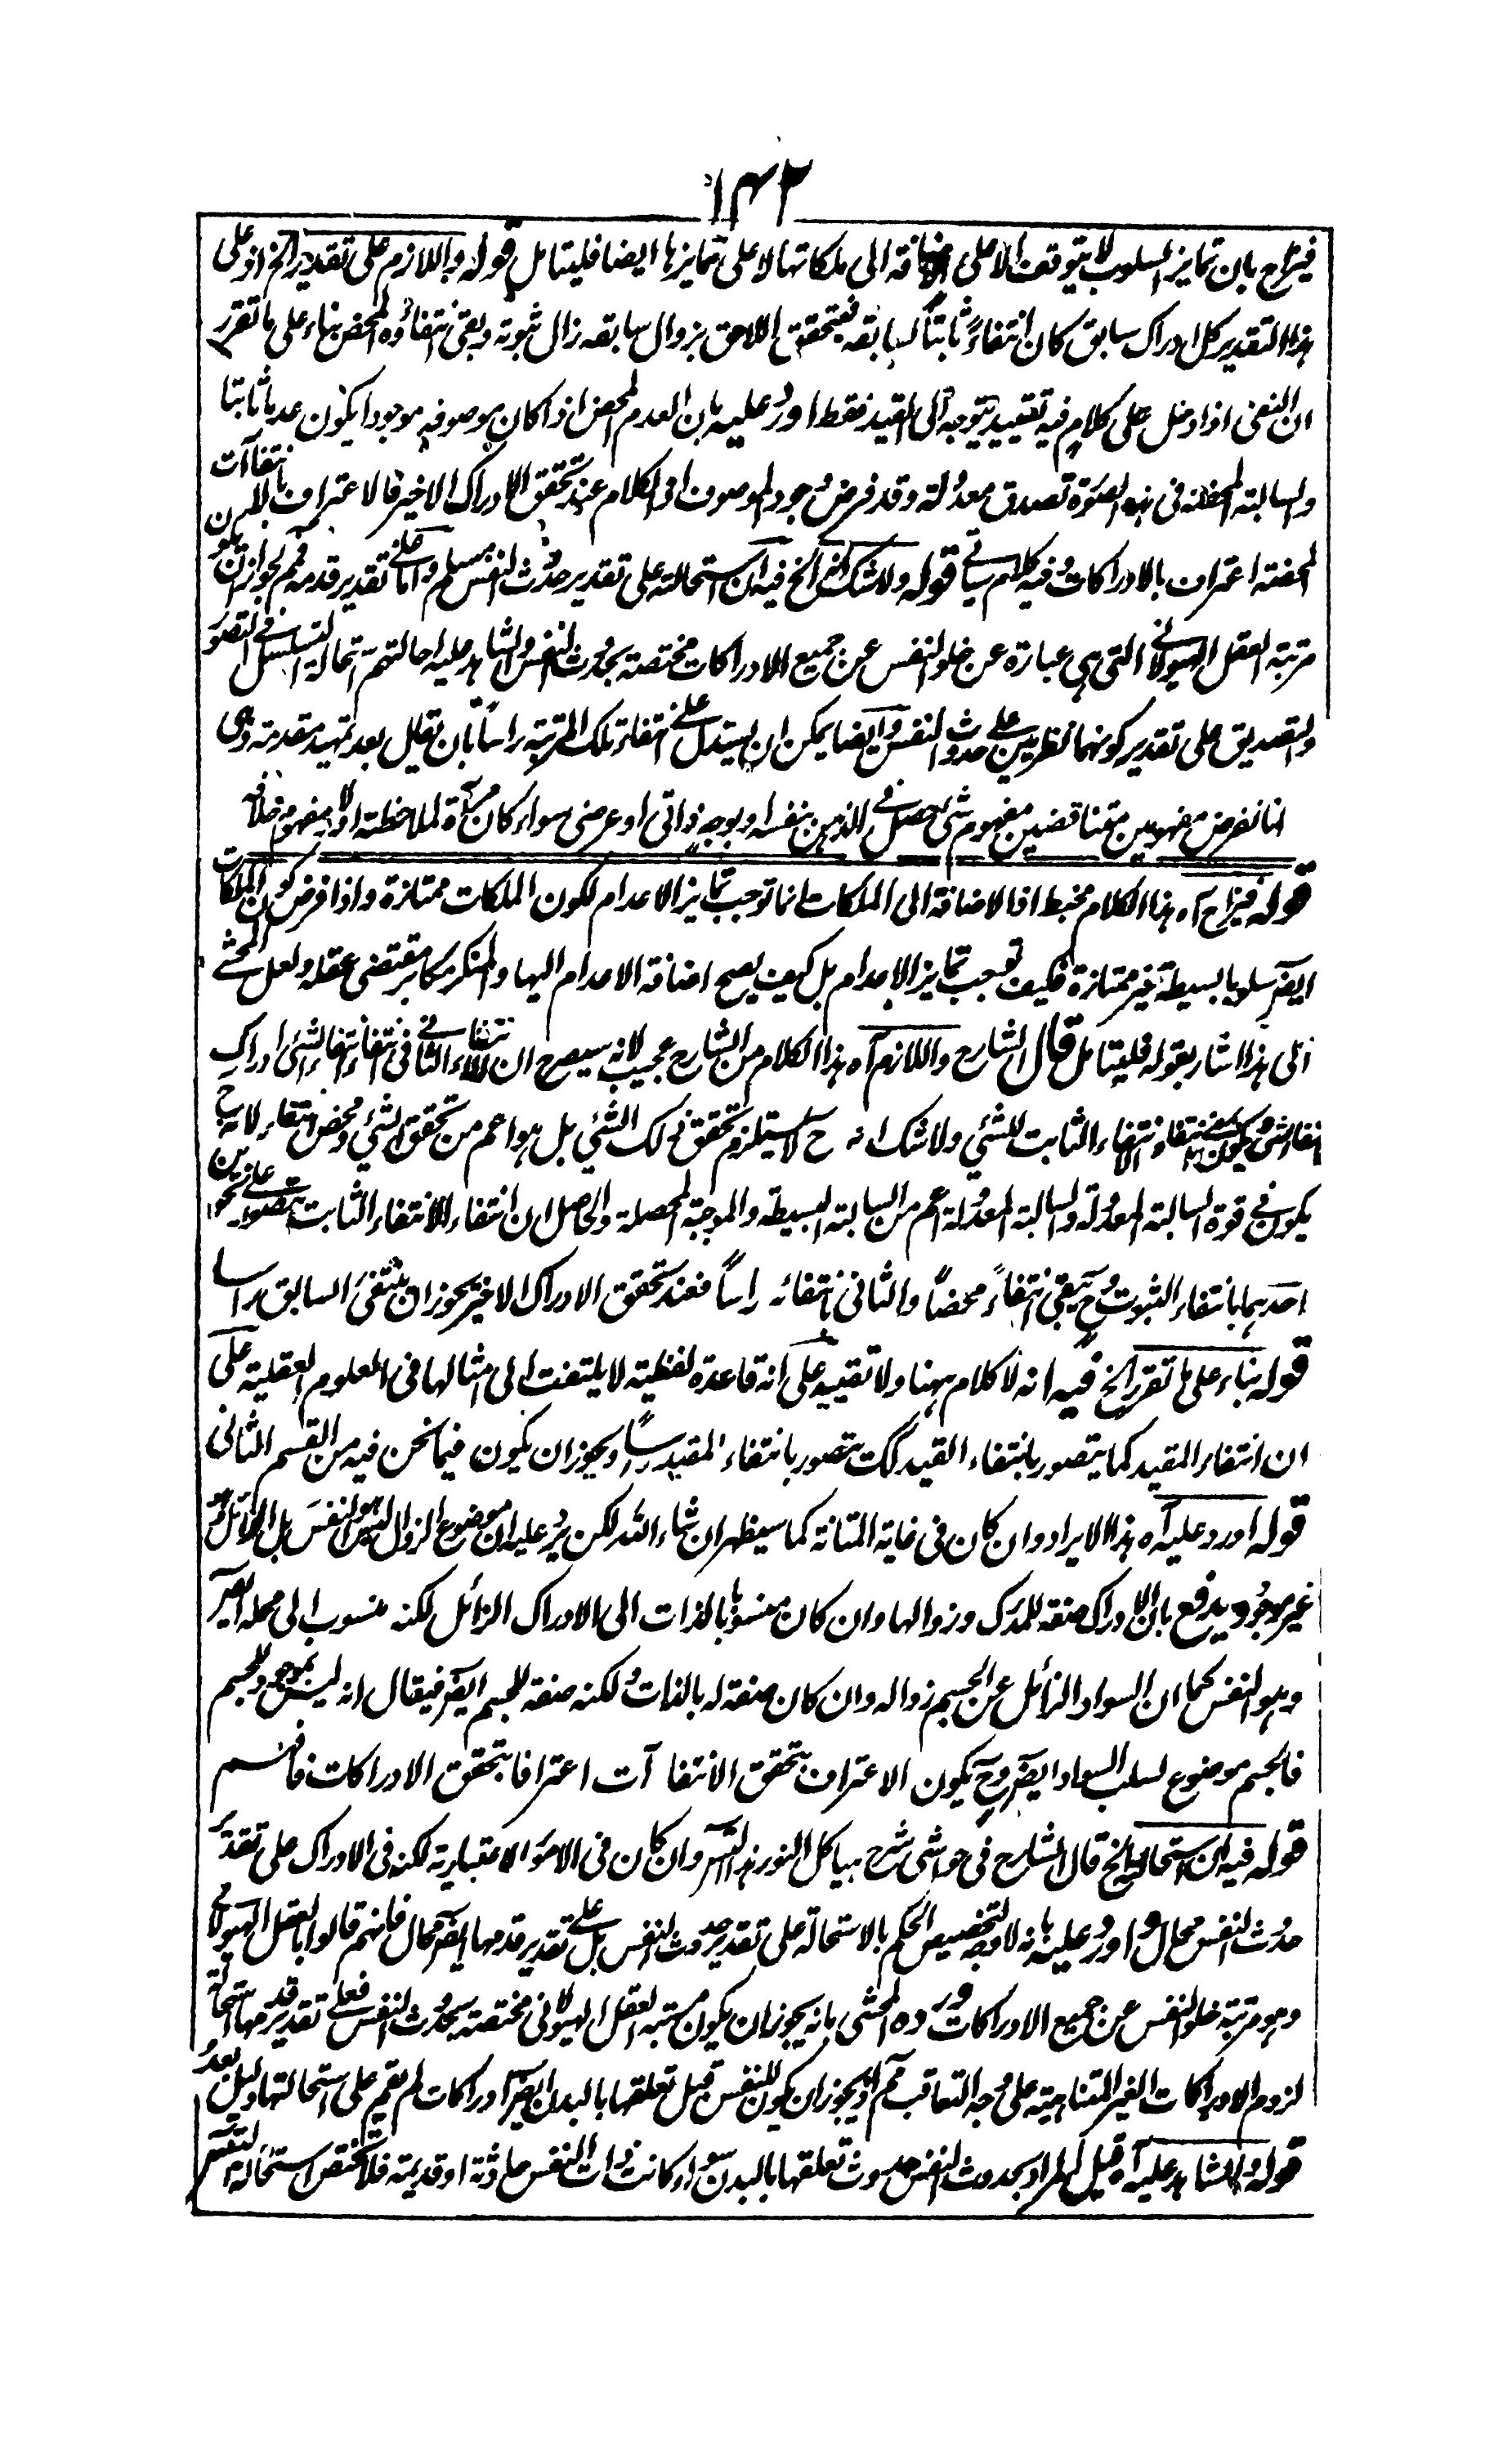 ١٤٢
فيزاح بان تمايز السلوب لا يتوقف الا على اضافة الى ملكاتها لا على تمايزها ايضا فليتامل قوله واللازم على تقدير الخ اذ على
هذا التقدير كل ادراك سابق كان انتفاءً ثابتاً لسابقه فبتحقق اللاحق يزوال سابقه زال ثبوته وبقى انتفاؤه المحض بناء على ما تقرر
ان النفى اذا دخل على كلام فيه تقييد يتوجه الى القيد فقط اورد عليه بان العدم المحض اذا كان موصوفه موجودا يكون عدما ثابتا
والسالبة المحضة فى هذه الصورة تصدق معدولة وقد فرض وجود الموصوف اذ الكلام عند تحقق الادراك الاخير فالاعتراف بانتفاآت
المحضة اعتراف بالادراكات وفيه كلام سياتى قوله ولا شك الخ فيه ان استحالته على تقدير حدوث النفس مسلم واما على تقدير قدمه فمم لجواز ان يكون
مرتبة العقل الهيولانى التى هى عبارة عن خلو النفس عن جميع الادراكات مختصة بحدوث النفس والشاهد عليه احالتهم استحالة التسلسل فى التصور
والتصديق على تقدير كونهما نظريين على حدوث النفس وايضا يمكن ان يستدل على انتفاء تلك المرتبة راساً بان نقول بعد تمهيد مقدمة وهى
انا نفرض مفهومين متناقضين مفهوم شئ يحصل فى الذهن بنفسه او بوجه ذاتى او عرضى سواء كان مرآة لملاحظته اولا ومفهوم خلافه
قوله فيزاح آه هذا الكلام مخبط اذا الاضافة الى الملكات انما توجب تمايز الاعدام لكون الملكات ممتازة واذا فرض كون الملكات
ايضا سلوبا بسيطة غير ممتازة فكيف توجب تمايز الاعدام بل كيف يصح اضافة الاعدام اليها والمنكر مكابر مقتضى عقله ولعل المحشى
الى هذا اشار بقوله فليتامل قال الشارح واللازم آه هذا الكلام من الشارح عجيب لانه سيصرح ان الانتفاء الثانى فى انتفاء انتفاء الشئ ادراك
انتفاء الشئ ويكون بمعنى انتفاء الانتفاء الثابت للشئ ولا شك انه ح لا يستلزم تحقق ذلك الشئ بل هو اعم من تحقق الشئ ومحض انتفاءه لانه ح
يكون فى قوة السالبة المعدولة والسالبة المعدولة اعم من السالبة البسيطة والموجبة المحصلة والحاصل ان انتفاء الانتفاء الثابت يتصور على نحوين
احدهما بانتفاء الثبوت وح يبقى انتفاءً محضاً والثانى بانتفائه راساً فعند تحقق الادراك الاخير يجوز ان ينتفى السابق راسا
قوله بناء على ما تقرر الخ فيه انه لا كلام ههنا ولا تقييد على انه قاعدة لفظية لا يلتفت الى امثالها فى العلوم العقلية على
ان انتفاء المقيد كما يتصور بانتفاء القيد كك يتصور بانتفاء المقيد راساً ويجوز ان يكون فيما نحن فيه من القسم الثانى
قوله اورد عليه آه هذا الايراد وان كان فى غاية المتانة كما سيظهر ان شاء الله لكن يرد عليه ان موضوع الزوال ليس هو النفس بل الزائل وهو
غير موجود ويدفع بان الادراك صفة للمدرك وزوالها وان كان منسوبا بالذات الى الادراك الزائل لكنه منسوب الى محله ايضا
وهو النفس كما ان السواد الزائل عن الجسم زواله وان كان صفة له بالذات ولكنه صفة للجسم ايضا فيقال انه ليس بموجود للجسم
فالجسم موضوع لسلب السواد ايضا وح يكون الاعتراف بتحقق الانتفا آت اعترافا بتحقق الادراكات فافهم
قوله فيه ان استحالته الخ قال الشارح فى حواشى شرح هياكل النور هذا التس وان كان فى الامور الاعتبارية لكنه فى الادراك على تقدير
حدوث النفس محال واورد عليه بانه لا وجه لتخصيص الحكم بالاستحالة على تقدير حدوث النفس بل على تقدير قدمها ايضا محال فانهم قالوا بالعقل الهيولانى
وهو مرتبة خلو النفس عن جميع الادراكات ورده المحشى بانه يجوز ان يكون مرتبة العقل الهيولانى مختصة بحدوث النفس فعلى تقدير قدمها استحالة
لزوم الادراكات الغير المتناهية على وجه التعاقب مم اذ يجوز ان يكون للنفس قبل تعلقها بالبدن ايضا ادراكات لم يقم على استحالتها دليل بعد
قوله والشاهد عليه آه قيل المراد بحدوث النفس حدوث تعلقها بالبدن سواء كانت ذات النفس حادثة او قديمة فلا يختص استحالة التس